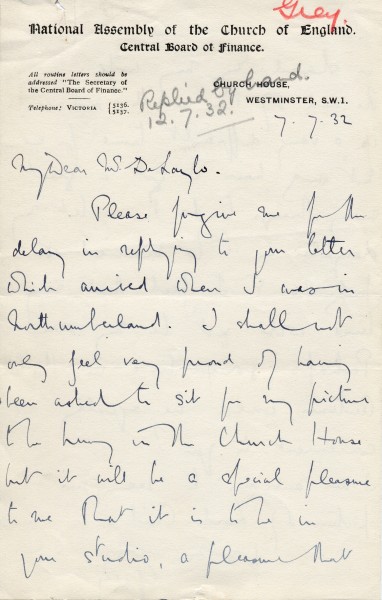 Grey.
National Assembly of the Church of England.
Central Board of Finance.
All routine letters should be
addressed "The Secretary of
the Central Board of Finance."
Telephone: VICTORIA { 3136.
3137.
Replied by hand.
12.7.32.
CHURCH HOUSE,
WESTMINSTER, S.W.1.
7.7.32
My Dear Mr De Laszlo.
Please forgive me for the
delay in replying to your letter
which arrived when I was in
Northumberland. I shall not
only feel very proud of having
been asked to sit for my picture
to be hung in the Church House
but it will be a special pleasure
to me that it is to be in
your studio, a pleasure that